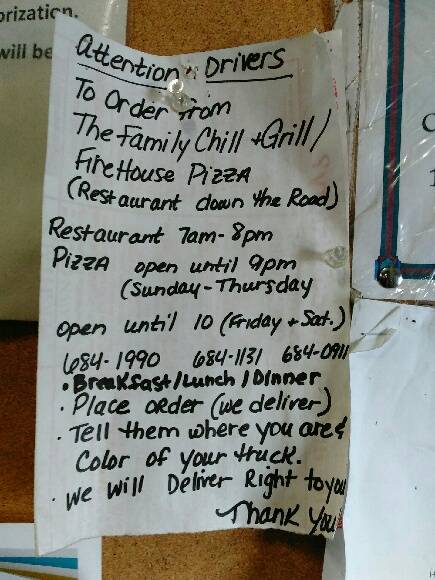 orization.
will be
Attention: Drivers
To Order from
The Family Chill + Grill /
FireHouse Pizza
(Restaurant down the Road)
Restaurant 7am - 8pm
Pizza open until 9pm
(Sunday - Thursday
open until 10 (Friday + Sat.)
684-1990 684-1131 684-0911
• Breakfast / Lunch / Dinner
• Place order (we deliver)
• Tell them where you are &
Color of your truck.
• We will Deliver Right to you
Thank You